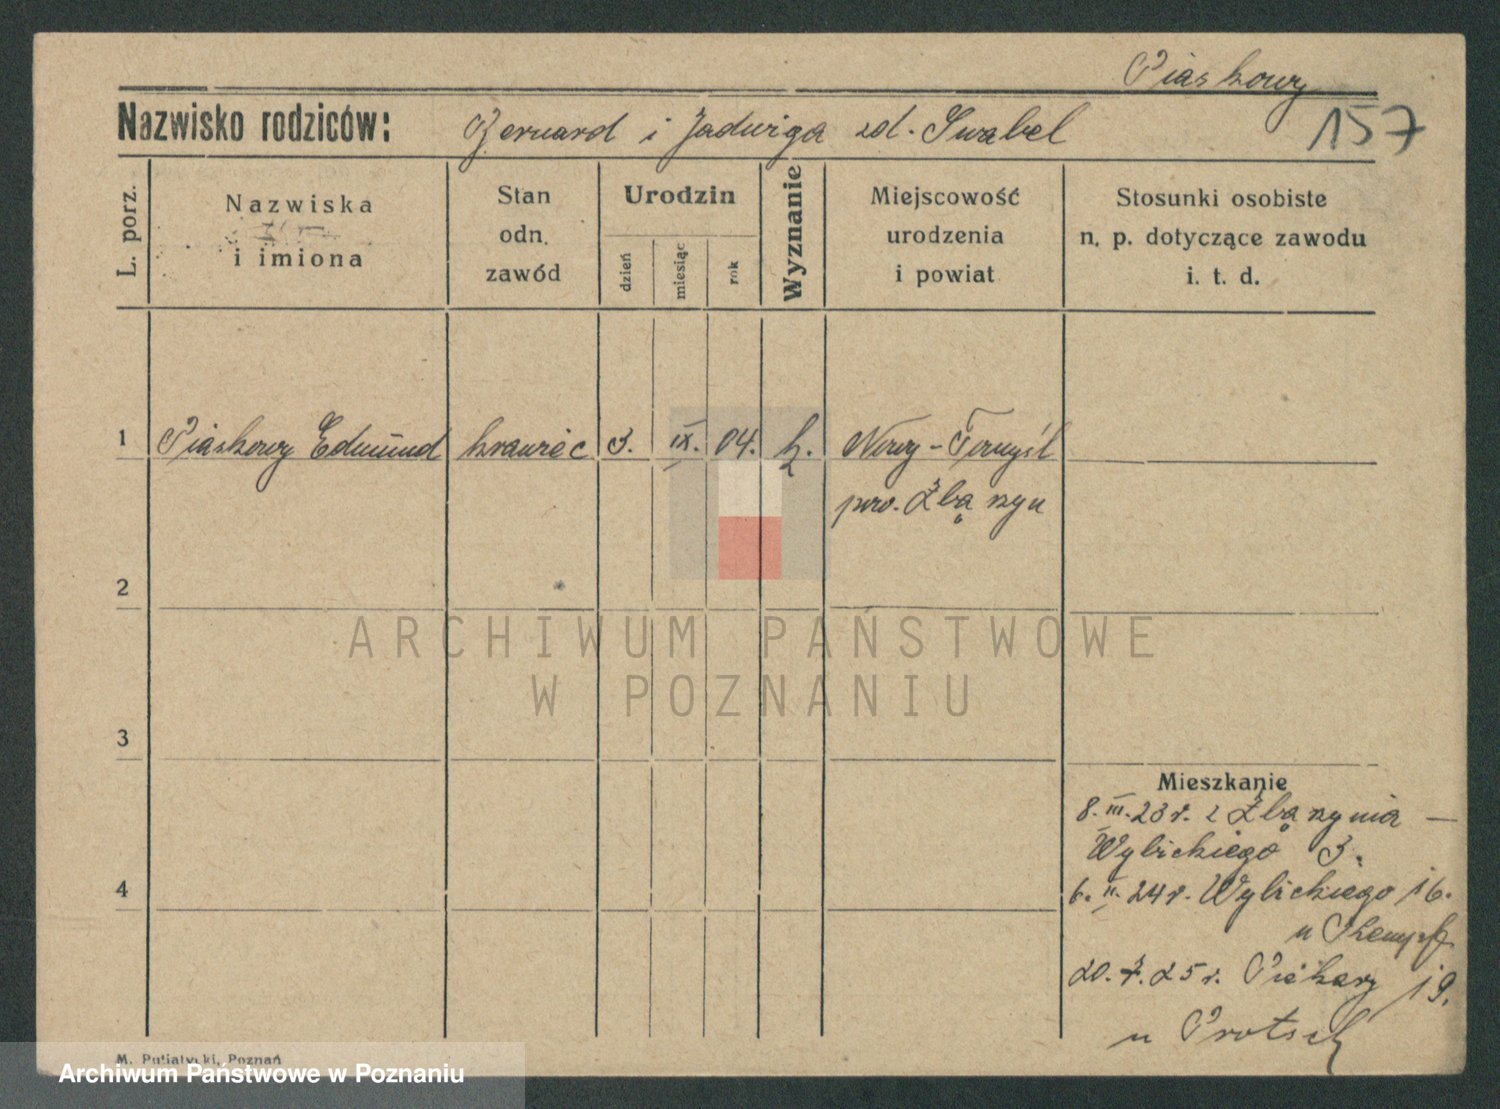 Piaskowy
157
Nazwisko rodziców: Bernard i Jadwiga zd. Swabel
L. porz.
Nazwiska i imiona
Stan odn. zawód
Urodzin
dzień
miesiąc
rok
Wyznanie
Miejscowość urodzenia i powiat
Stosunki osobiste n. p. dotyczące zawodu i. t. d.
1 Piaskowy Edmund krawiec 3. IX. 04. k. Nowy-Tomyśl
pow. Zbąszyn
2
3
4
Mieszkanie
8. III. 23 r. z Zbąszynia —
Wybickiego 3.
6. II. 24 r. Wybickiego 16.
u
20. 7. 25 r. Piekary 19.
u Protsch
ARCHIWUM PAŃSTWOWE
W POZNANIU
M. Putiatycki, Poznań
Archiwum Państwowe w Poznaniu